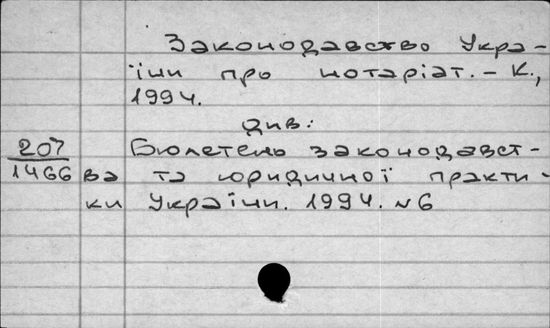 Законодавство Укра-
їни про нотаріат. – К.,
1994.
див:
207 Бюлетень законодавст-
1466 ва та юридичної практи-
ки України. 1994. №6